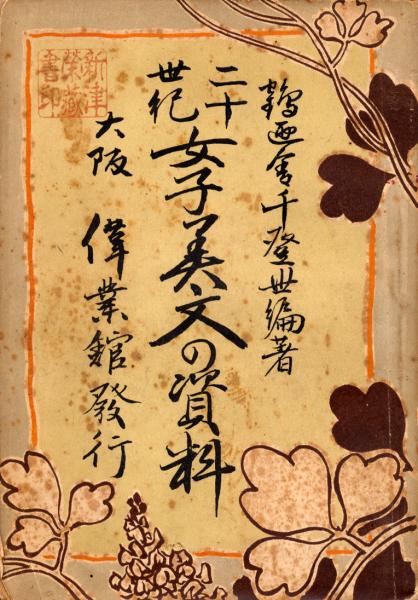 鶴廼舎千登世編著
二十世紀
女子美文の資料
大阪 偉業館發行
新津
榮藏
書印